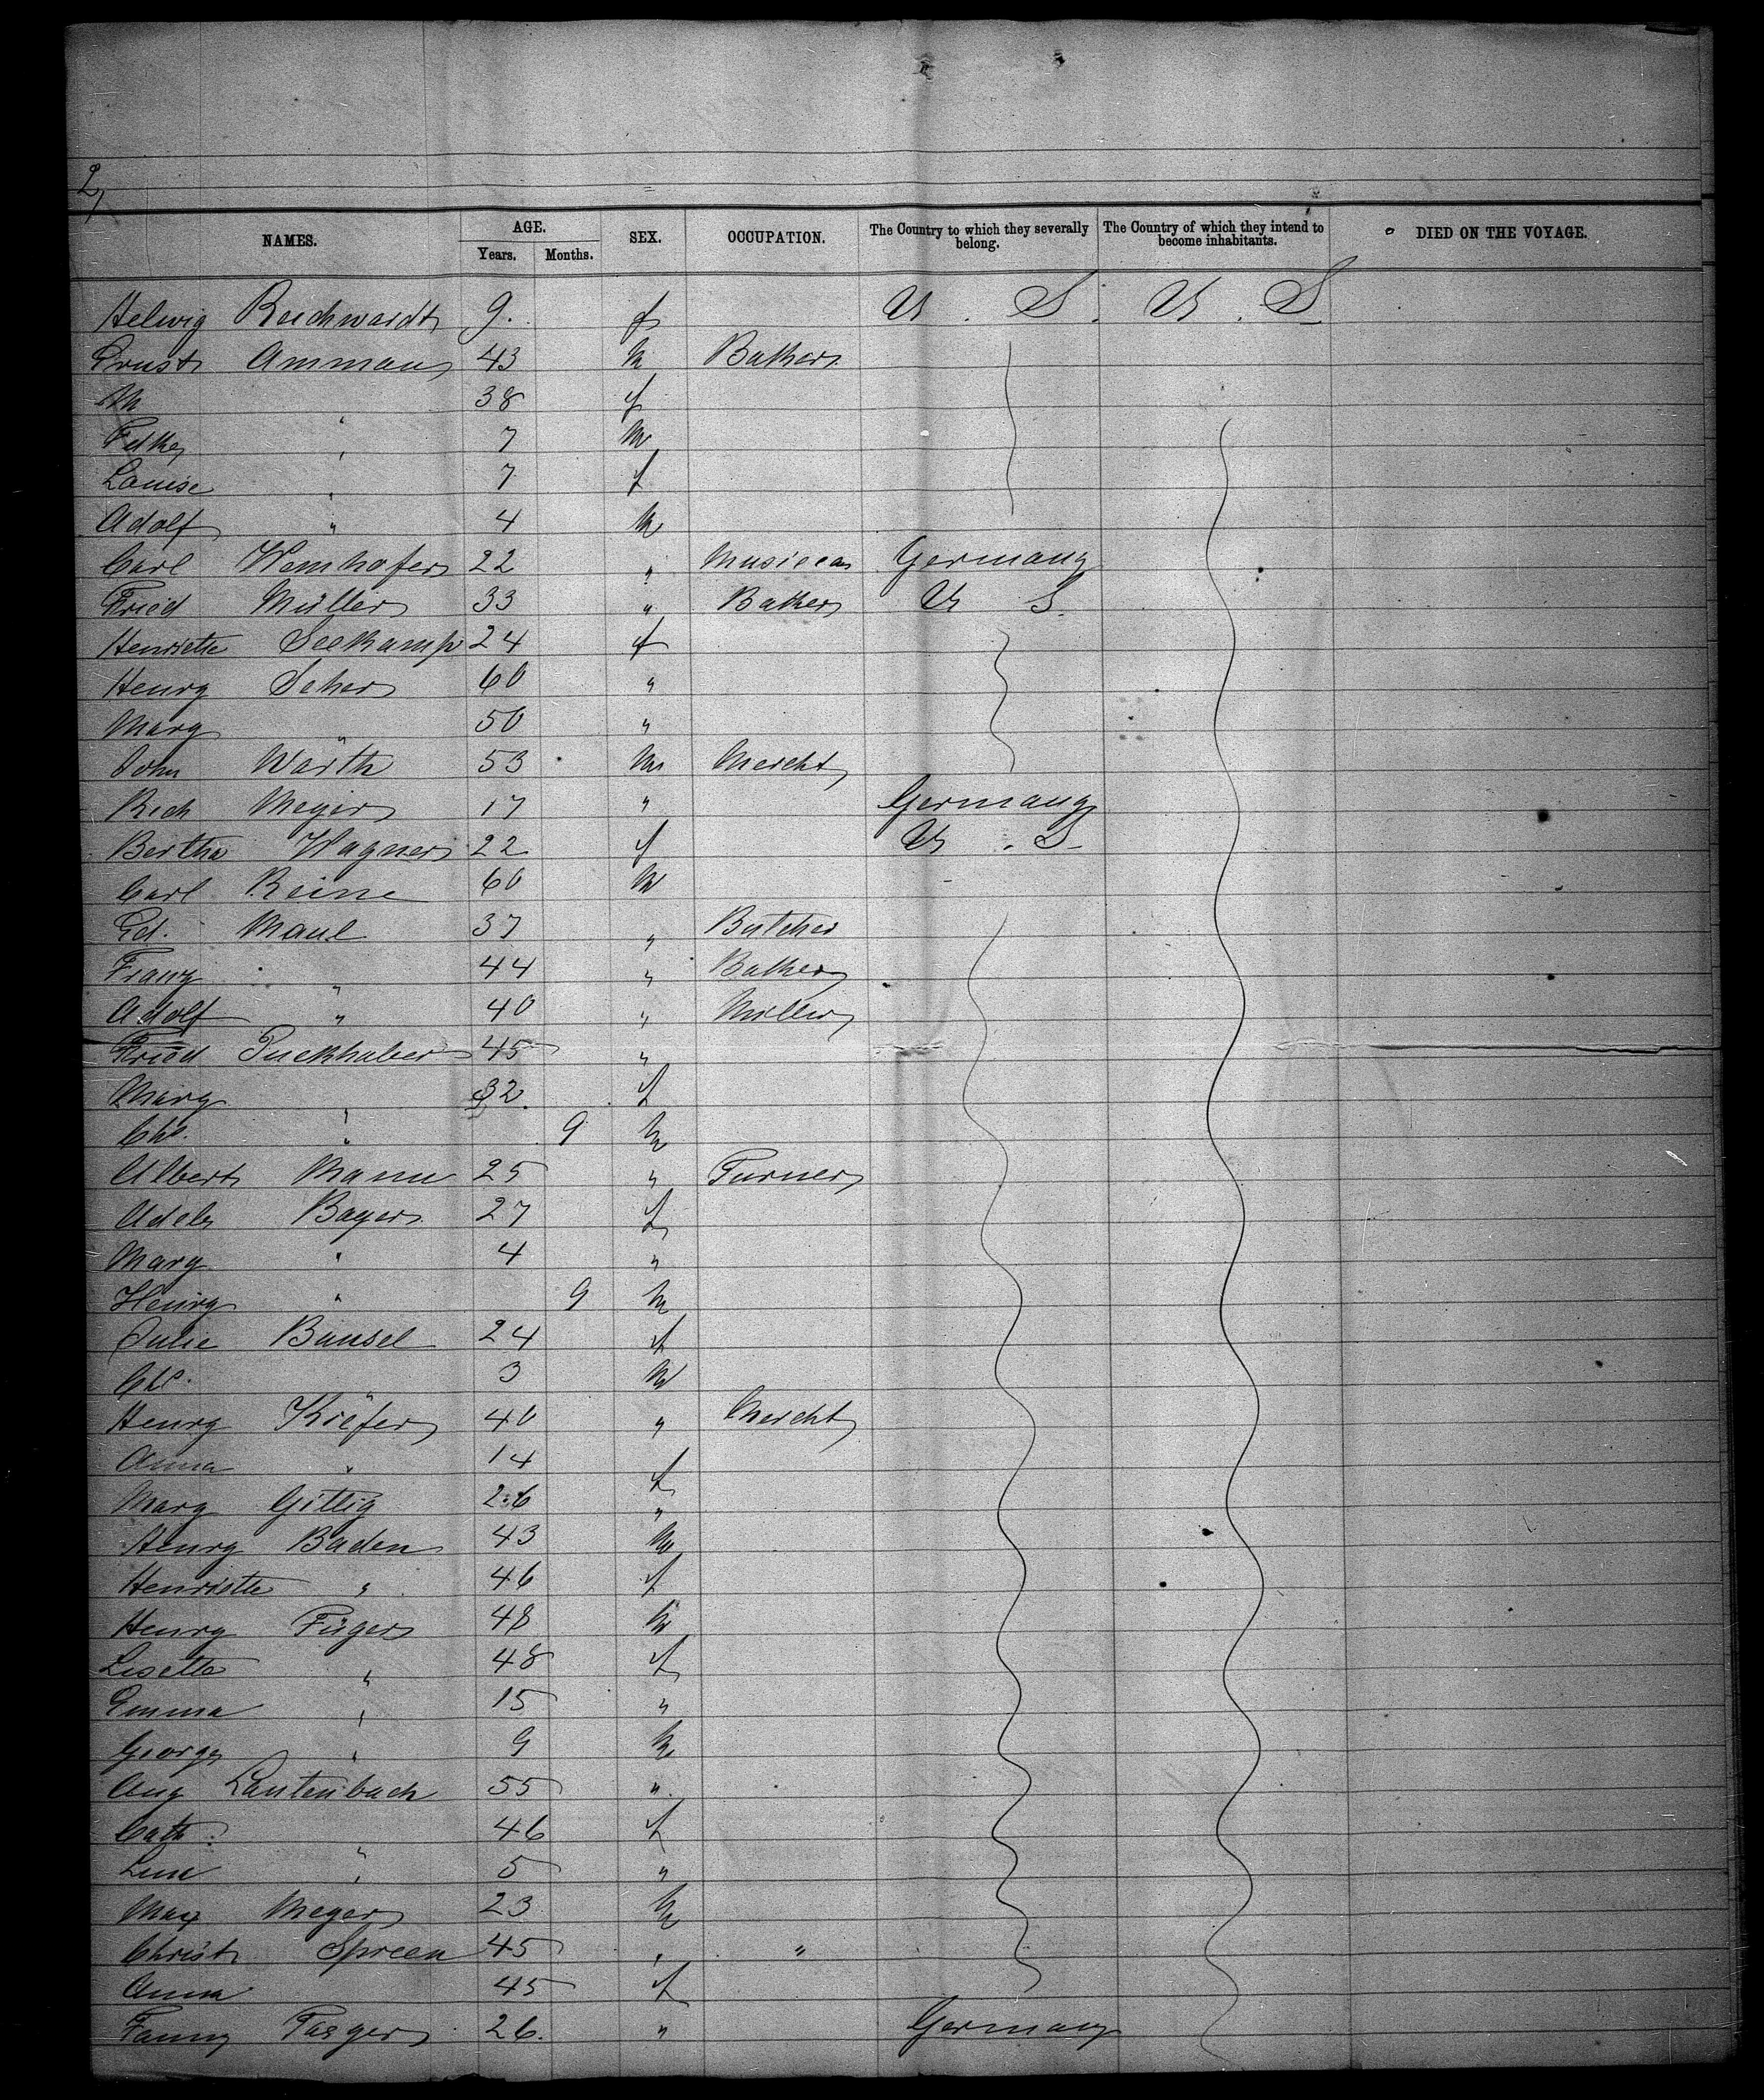 2,
NAMES. AGE. Years. Months. SEX. OCCUPATION. The Country to which they severally belong. The Country of which they intend to become inhabitants. DIED ON THE VOYAGE.
Helwig Reichwardt 9. f U. S. U. S
Ernst Ammann 43 m Baker
M " 38 f
" 7 m
Louise " 7 f
Adolf " 4 m
Carl Wemhofer 22 " Musician Germany
Fried Müller 33 " Baker U S.
Henriette Seekamp 24 f
Henry Seher 60 "
Marg " 50 "
John Wärth 53 m Mercht
Rich Meyer 17 " Germany
Bertha Wagner 22 f U. S.
Carl Reine 60 m
Ed. Maul 37 " Butcher
Franz " 44 " Baker
Adolf " 40 " Miller
Fried Puckhaber 45 "
Marg " 32. f
Chl. " 9 m
Albert Mann 25 " Turner
Adele Bayer 27 f
Marg " 4 "
Henry " 9 m
Julie Bünsel 24 f
Chl. " 3 m
Henry Kiefer 40 " Mercht
Anna " 14 f
Marg Gillig 26 "
Henry Baden 43 m
Henriette " 46 f
Henry Füger 48 m
Lisette " 48 f
Emma " 15 "
George " 9 m
Aug Lautenbach 55 "
Cath. " 46 f
Lina " 5 "
Max Meyer 23 m
Christ Spreen 45 " "
Anna 45 f
Fanny 26. " Germany